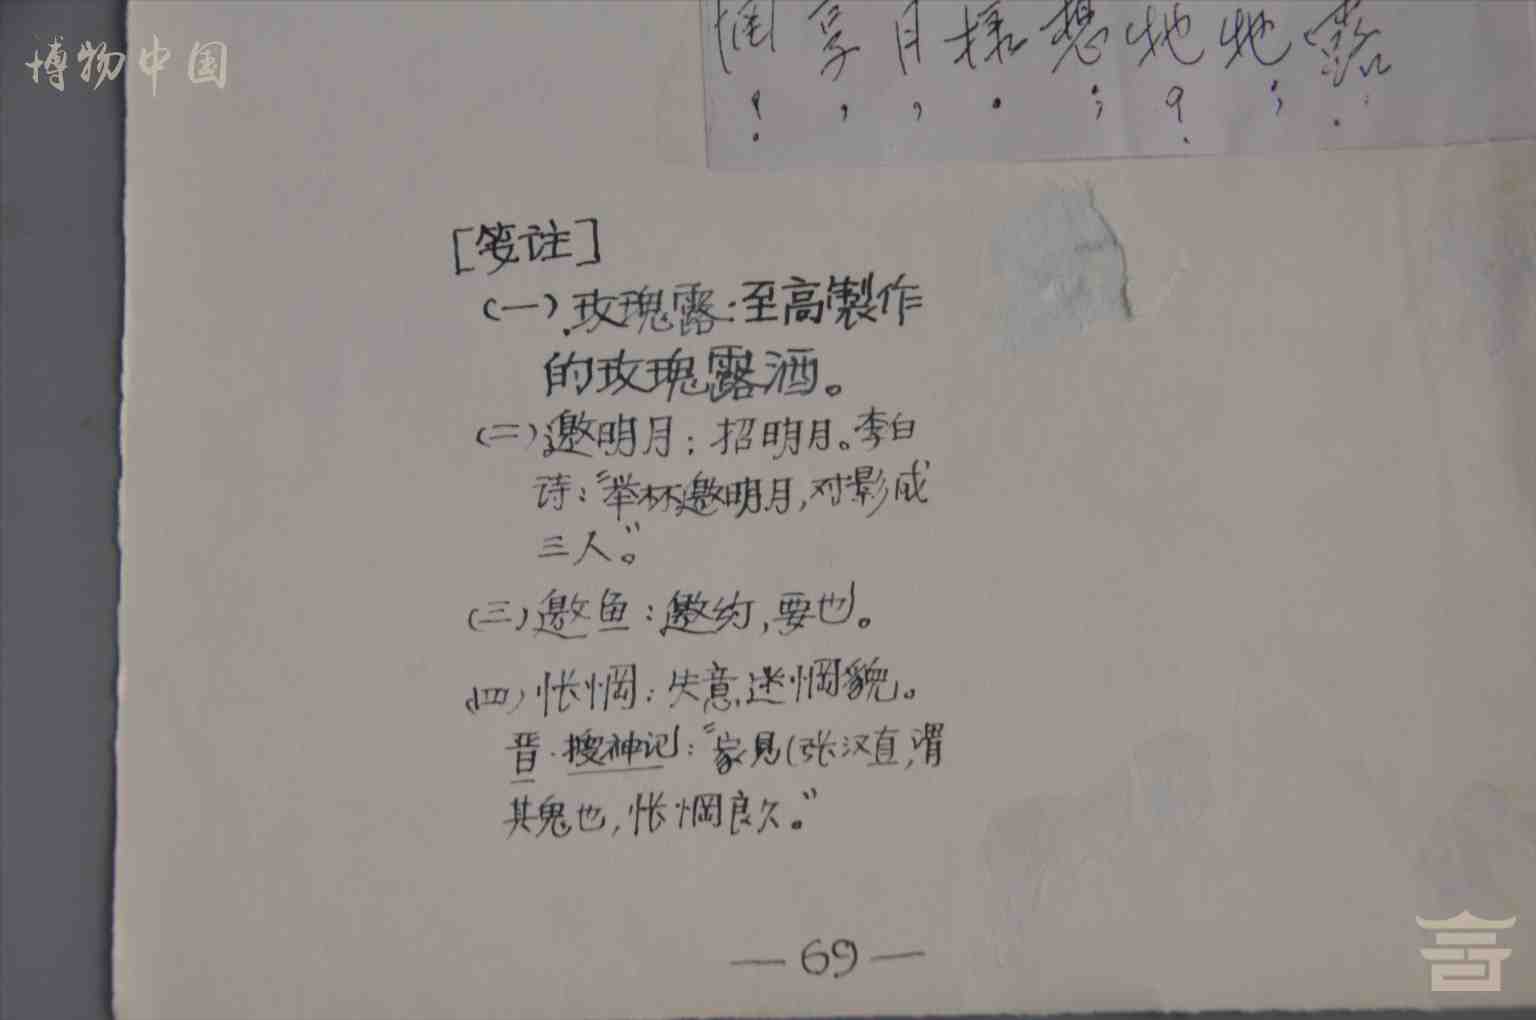 博物中国
惘享月樣想她她露
！，，。；？；。
[笺註]
(一)玫瑰露:至高製作
的玫瑰露酒。
(二)邀明月:招明月。李白
诗:"举杯邀明月,对影成
三人"。
(三)邀鱼:邀约,要也。
(四)怅惘:失意,迷惘貌。
晋·搜神记:"家见(张汉直,谓
其鬼也,怅惘良久。"
—69—